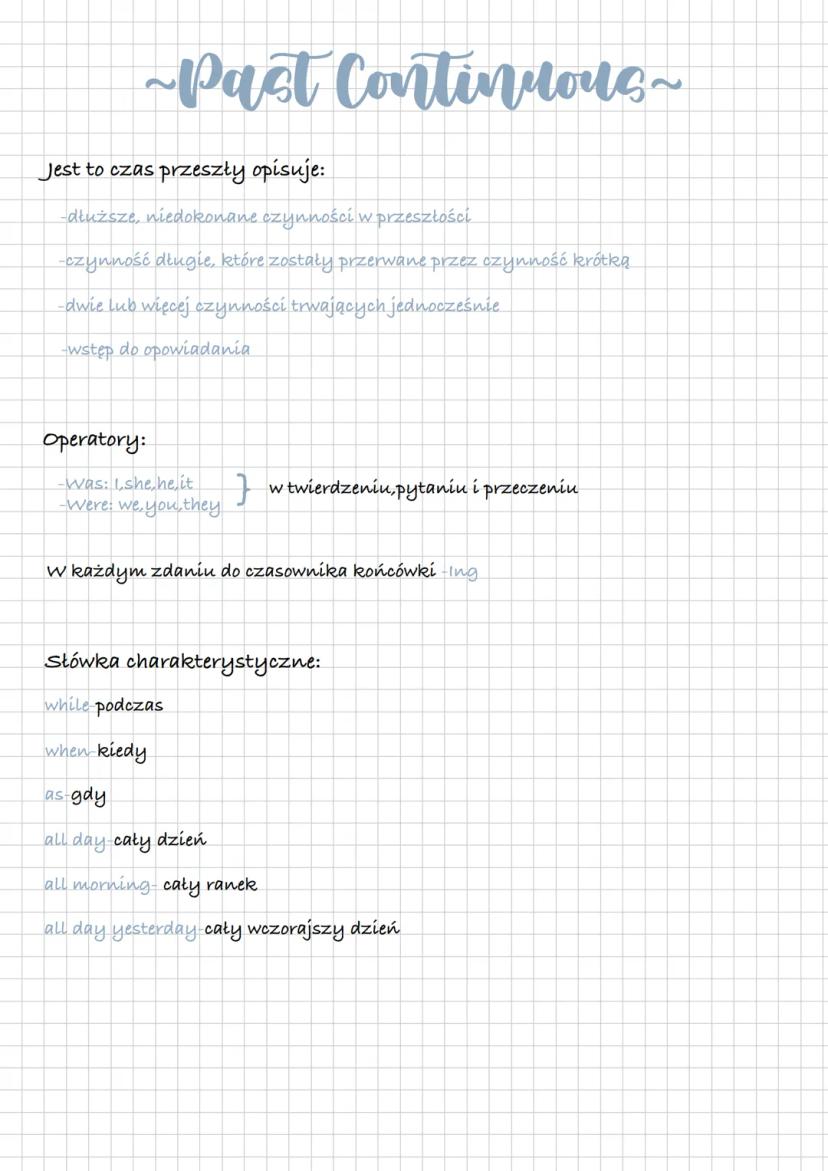 ~Past Continuous~
Jest to czas przeszły opisuje:
-dłuższe, niedokonane czynności w przeszłości
-czynność długie, które zostały przerwane przez czynność krótką
-dwie lub więcej czynności trwających jednocześnie
-wstęp do opowiadania
Operatory:
-Was: I,she,he,it
-Were: we,you,they
} w twierdzeniu,pytaniu i przeczeniu
W każdym zdaniu do czasownika końcówki -Ing
Słówka charakterystyczne:
while-podczas
when-kiedy
as-gdy
all day-cały dzień
all morning- cały ranek
all day yesterday-cały wczorajszy dzień